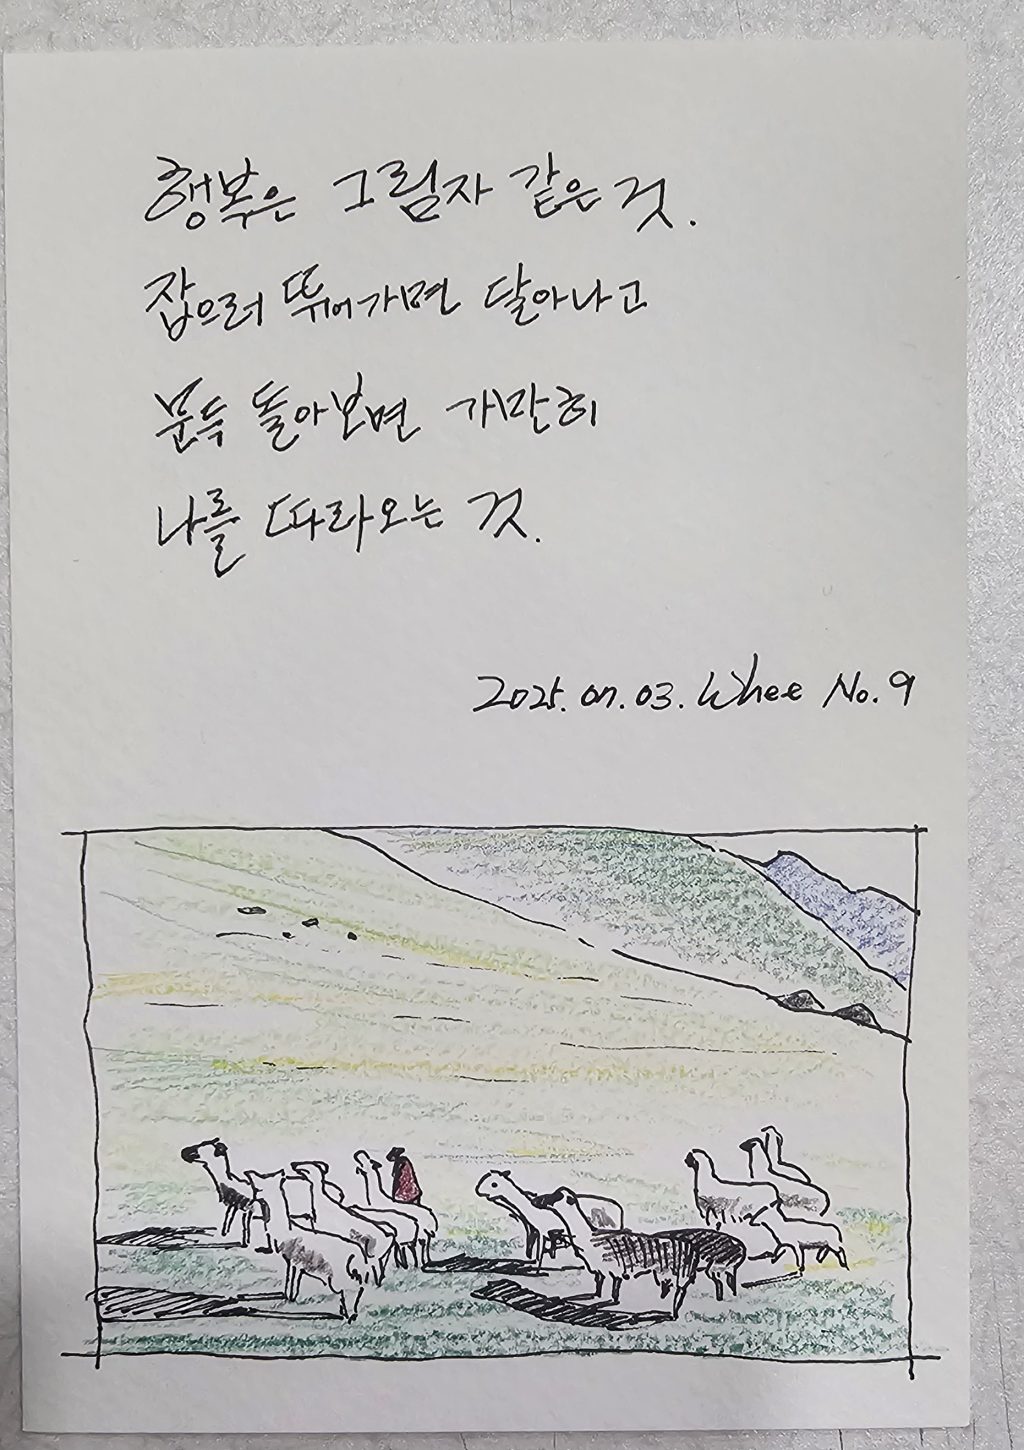 행복은 그림자 같은 것.
잡으러 뛰어가면 달아나고
문득 돌아보면 가만히
나를 따라오는 것.
2025. 07. 03. Whee No. 9